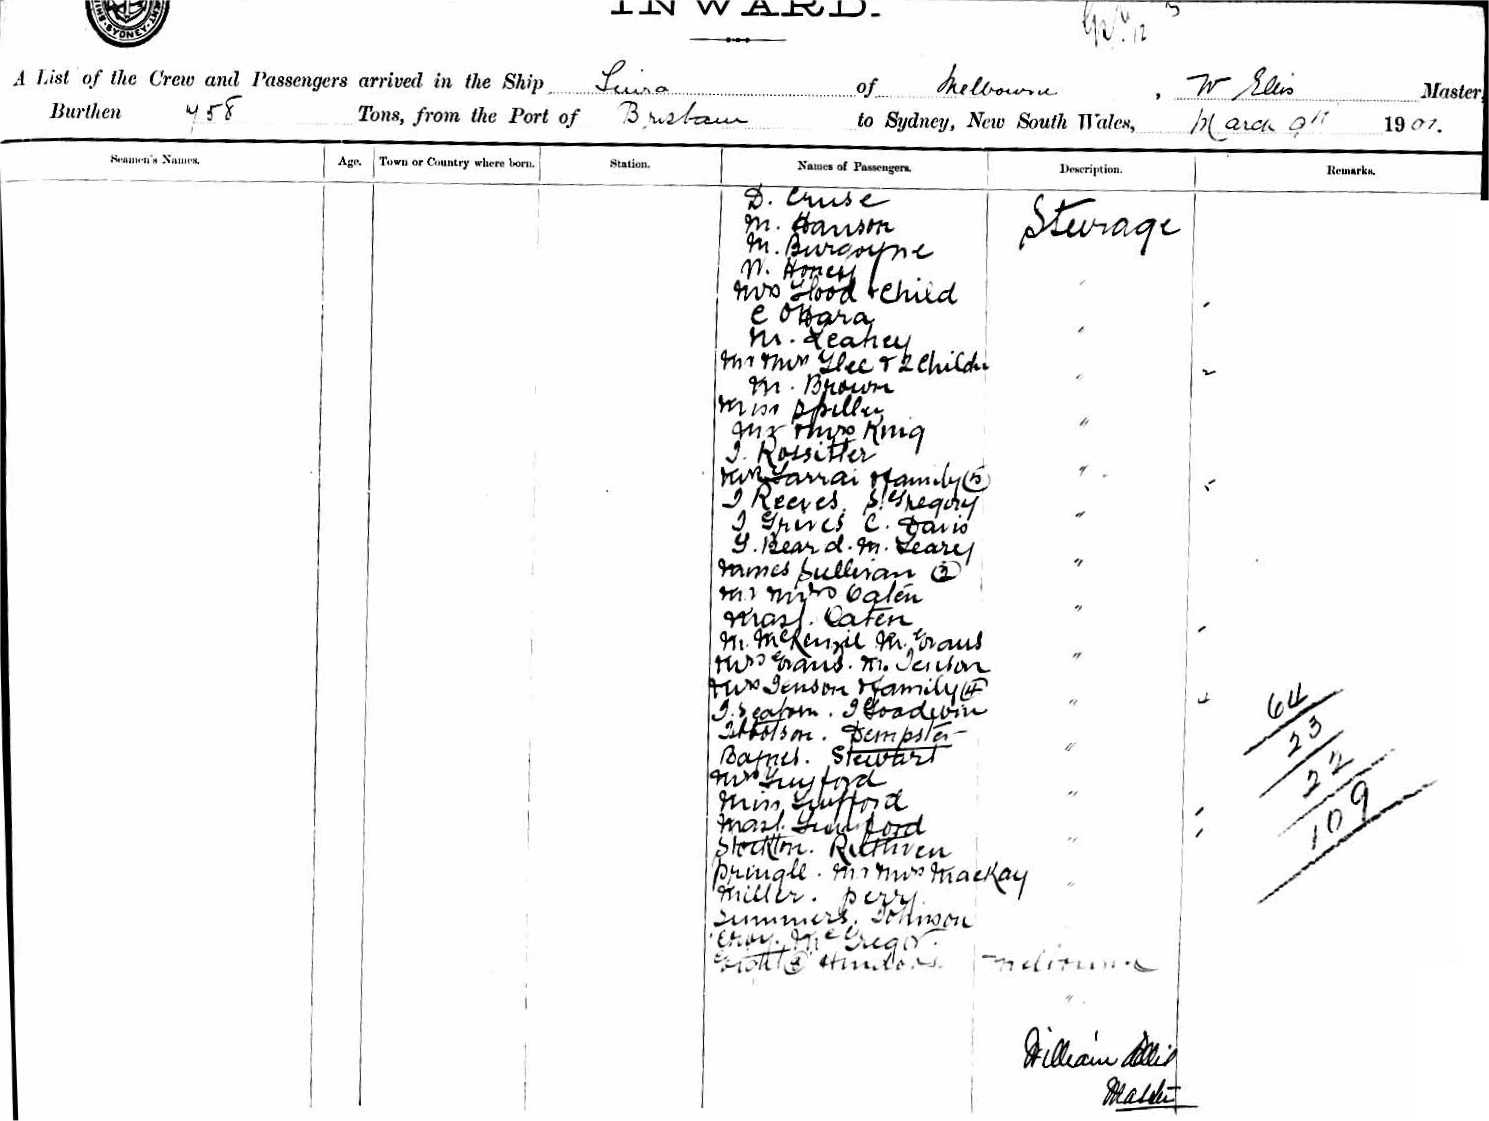 SYDNEY
INWARD.
A List of the Crew and Passengers arrived in the Ship of Melbourne, W Ellis Master,
Burthen 458 Tons, from the Port of Brisbane to Sydney, New South Wales, March 9th 1901.
Seamen's Names. Age. Town or Country where born. Station. Names of Passengers. Description. Remarks.
D. Cruse
M. Hanson Steerage
M. Burgoyne
N. Honey
Mrs Flood & Child "
C O'Hara
M. Leahey "
Mr & Mrs Glee & 2 Childn
M. Brown "
Miss Spiller
Mr & Mrs King "
J. Rossitter
Mrs & Family (5) "
J Reeves. S. Gregory
J Grives C. Davis "
G. Beard. M. Leary
James Sullivan (2) "
Mr & Mrs Caten
Mast. Caten "
M. McKenzie M. Evans
Mrs Evans. M. Jenson "
Mrs Jenson & Family (4) 64
J. . J Goodwin " 23
Ibbotson. Dempster 22
Barnes. Stewart " 109
Mrs Guyford
Miss "
Mast.
Stockton. Ruthven "
Pringle. Mr & Mrs Mackay
Miller. Perry. "
Summers. Johnson
McGregor.
Eight (8) Hindoos. Melbourne
"
William Ellis
Master